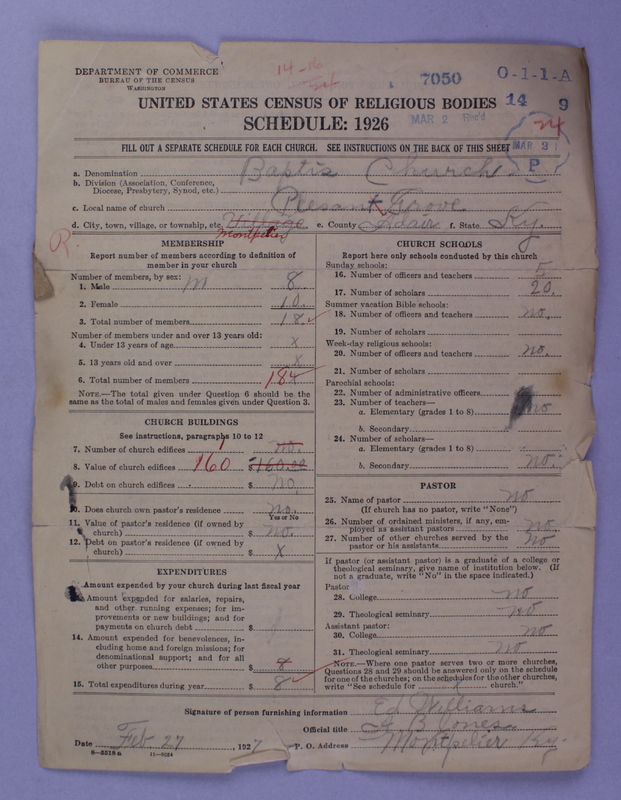 DEPARTMENT OF COMMERCE
BUREAU OF THE CENSUS
WASHINGTON
14-16
7050
0-1-1-A
UNITED STATES CENSUS OF RELIGIOUS BODIES
14 9
SCHEDULE: 1926
MAR 2 Rec'd
24
FILL OUT A SEPARATE SCHEDULE FOR EACH CHURCH. SEE INSTRUCTIONS ON THE BACK OF THIS SHEET
MAR 3
P
a. Denomination Baptis Church
b. Division (Association, Conference, Diocese, Presbytery, Synod, etc.)
c. Local name of church Plesant Grove
d. City, town, village, or township, etc. Village e. County Adair f. State Ky.
Montpelier
R.
MEMBERSHIP
Report number of members according to definition of
member in your church
Number of members, by sex:
1. Male m 8
2. Female 10.
3. Total number of members 18
Number of members under and over 13 years old:
4. Under 13 years of age x
5. 13 years old and over x
6. Total number of members 18
NOTE.—The total given under Question 6 should be the
same as the total of males and females given under Question 3.
CHURCH BUILDINGS
See instructions, paragraphs 10 to 12
7. Number of church edifices 1 no.
8. Value of church edifices 160 $160.00
9. Debt on church edifices $ no
10. Does church own pastor's residence no.
Yes or No
11. Value of pastor's residence (if owned by
church) $ no.
12. Debt on pastor's residence (if owned by
church) $ x
EXPENDITURES
Amount expended by your church during last fiscal year
13. Amount expended for salaries, repairs,
and other running expenses; for im-
provements or new buildings; and for
payments on church debt $
14. Amount expended for benevolences, in-
cluding home and foreign missions; for
denominational support; and for all
other purposes $ 8
15. Total expenditures during year $ 8
CHURCH SCHOOLS
Report here only schools conducted by this church
Sunday schools:
16. Number of officers and teachers 5
17. Number of scholars 20.
Summer vacation Bible schools:
18. Number of officers and teachers no.
19. Number of scholars
Week-day religious schools:
20. Number of officers and teachers no.
21. Number of scholars
Parochial schools:
22. Number of administrative officers
23. Number of teachers—
a. Elementary (grades 1 to 8) no
b. Secondary
24. Number of scholars—
a. Elementary (grades 1 to 8)
b. Secondary no.
PASTOR
25. Name of pastor no
(If church has no pastor, write "None")
26. Number of ordained ministers, if any, em-
ployed as assistant pastors no
27. Number of other churches served by the
pastor or his assistants no
If pastor (or assistant pastor) is a graduate of a college or
theological seminary, give name of institution below. (If
not a graduate, write "No" in the space indicated.)
Pastor
28. College no
29. Theological seminary no
Assistant pastor:
30. College no
31. Theological seminary no
NOTE.—Where one pastor serves two or more churches,
Questions 28 and 29 should be answered only on the schedule
for one of the churches; on the schedules for the other churches,
write "See schedule for x church."
Signature of person furnishing information Ed Williams
Official title A B Jones
Date Feb 27, 1927 P. O. Address Montpelier Ky.
8-5518a 11-9024